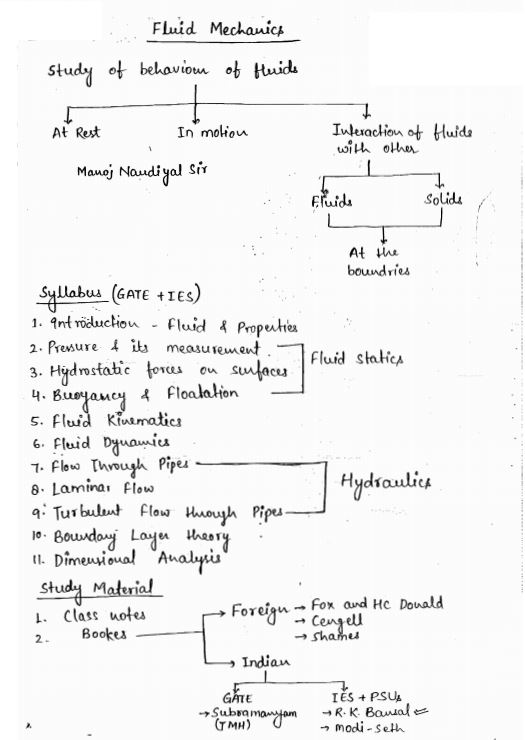 Fluid Mechanics
Study of behaviour of fluids
At Rest In motion Interaction of fluids
with other
Manoj Naudiyal Sir
Fluids Solids
At the
boundries
Syllabus (GATE + IES)
1. Introduction - Fluid & Properties
2. Pressure & its measurement
Fluid statics
3. Hydrostatic forces on surfaces
4. Buoyancy & Floatation
5. Fluid Kinematics
6. Fluid Dynamics
7. Flow Through Pipes
8. Laminar Flow
Hydraulics
9. Turbulent flow through Pipes
10. Boundary Layer theory
11. Dimensional Analysis
Study Material
1. Class notes
2. Bookes
Foreign → Fox and Mc Donald
→ Cengell
→ Shames
→ Indian
GATE IES + PSUs
→ Subramanyam → R.K. Bansal
(TMH) → modi-Seth